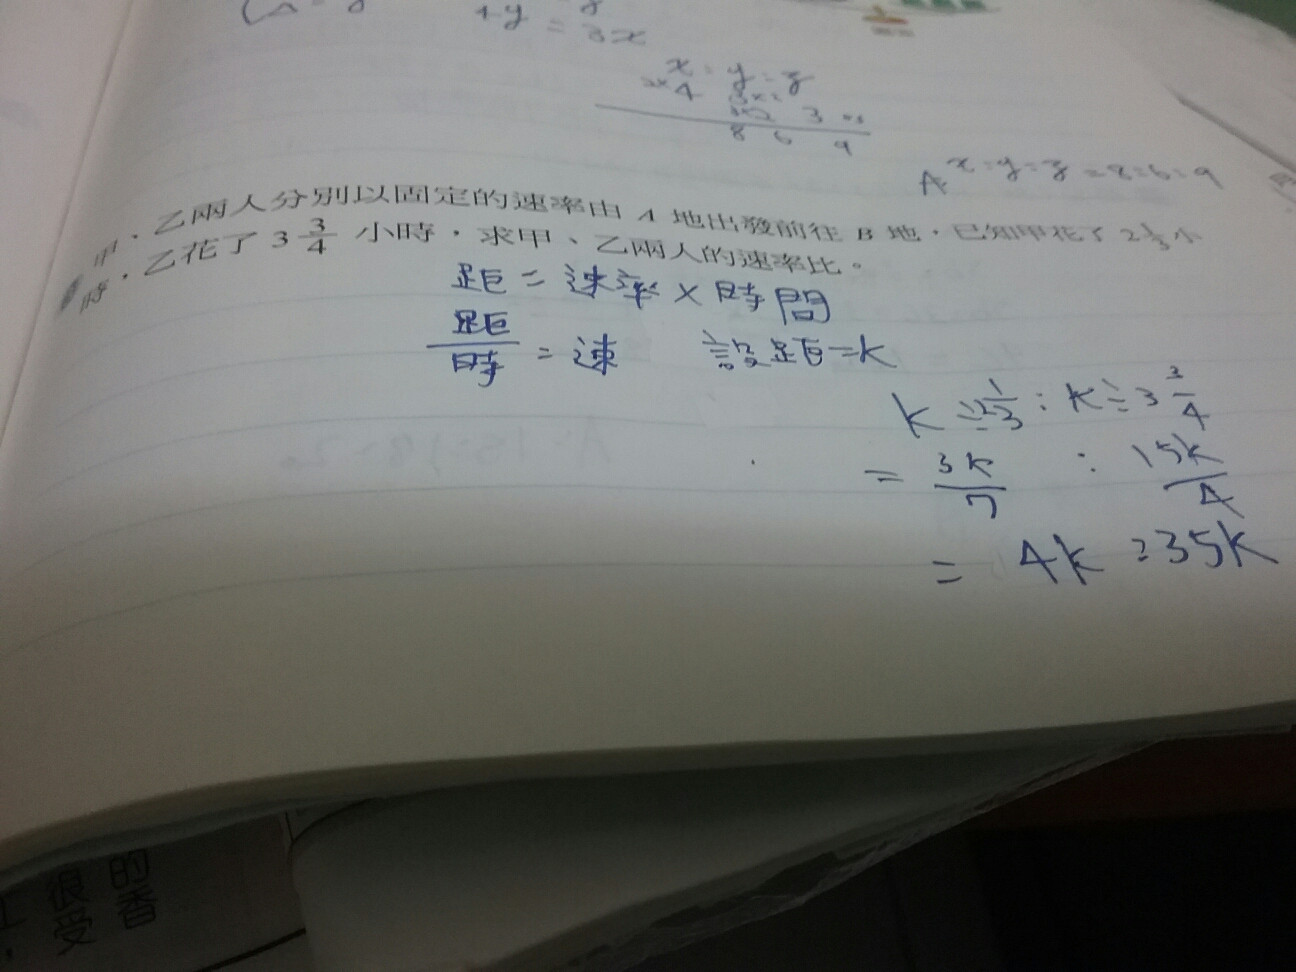 +y = 3x
x : y : z
4 3
3 x2 3 x3
8 6 9
A x:y:z = 8:6:9
甲、乙兩人分別以固定的速率由 A 地出發前往 B 地,已知甲花了 2 1/3 小
時,乙花了 3 3/4 小時,求甲、乙兩人的速率比。
距 = 速率 × 時間
距/時 = 速 設距=k
k ÷ 2 1/3 : k ÷ 3 3/4
= 3k/7 : 15k/4
= 4k : 35k
的香
很受